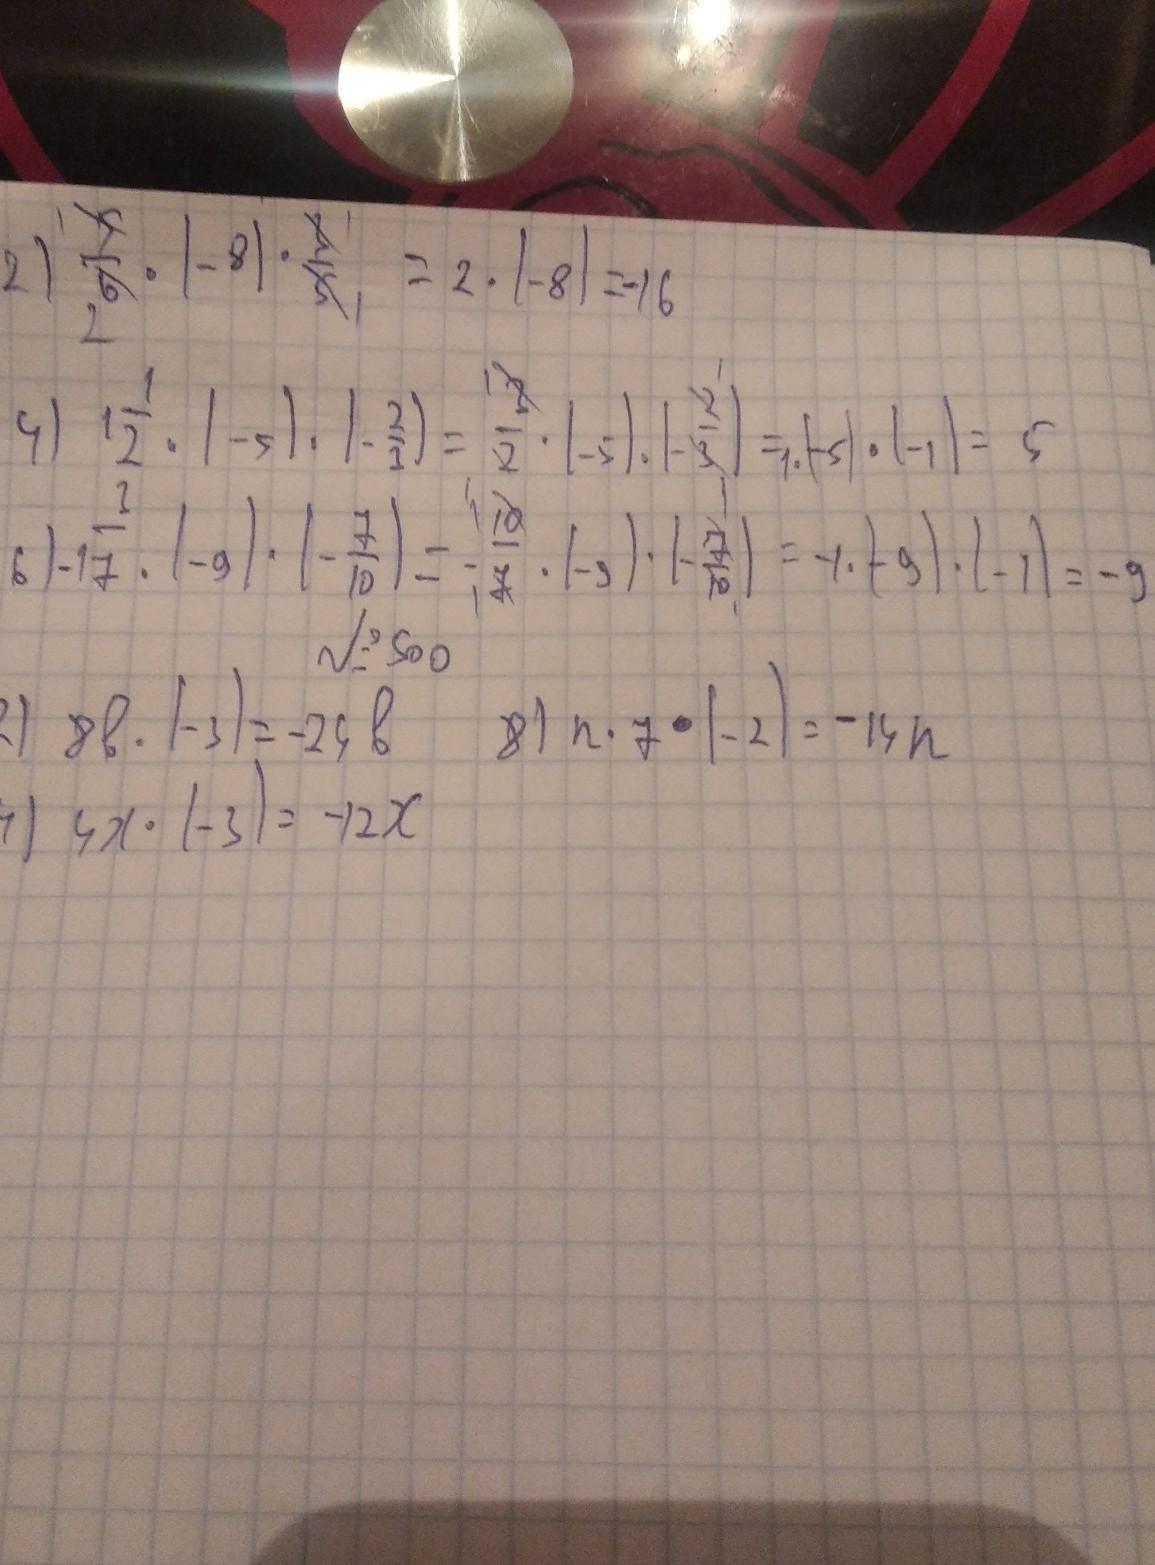 2) 5/6 · (-8) · 2/5 = 2 · (-8) = -16
4) 1 1/2 · (-5) · (-2/3) = 3/2 · (-5) · (-2/3) = 1 · (-5) · (-1) = 5
6) -1 3/7 · (-9) · (-7/10) = -10/7 · (-9) · (-7/10) = -1 · (-9) · (-1) = -9
№500
2) 8b · (-3) = -24b 8) n · 7 · (-2) = -14n
4) 4x · (-3) = -12x